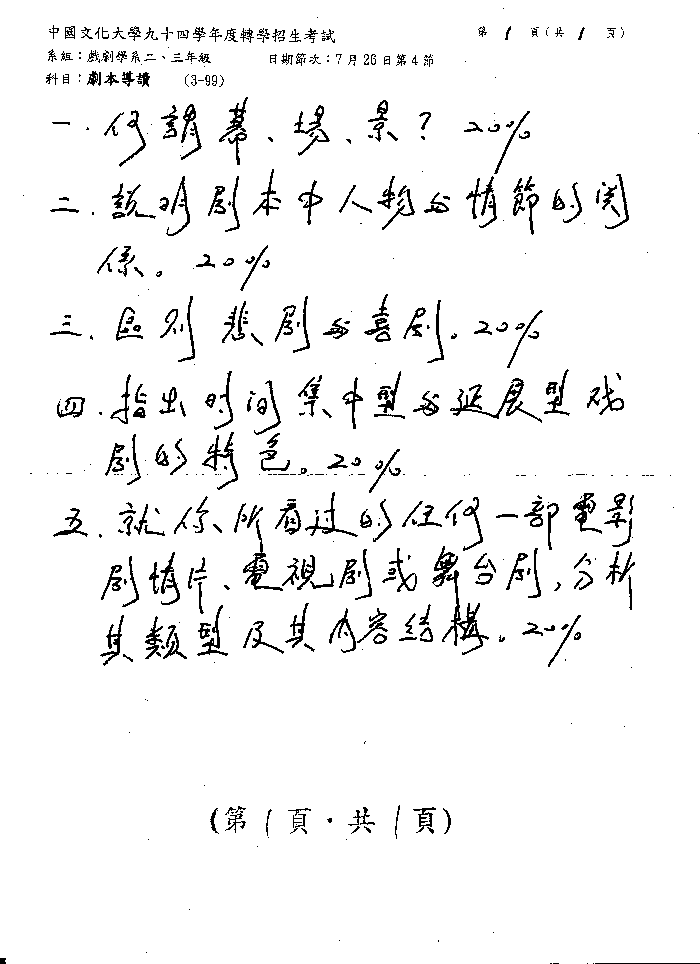 中國文化大學九十四學年度轉學招生考試 第1頁(共1頁)
系組：戲劇學系二、三年級 日期節次：7月26日第4節
科目：劇本導讀 (3-99)
一．何謂幕、場、景？20%
二．說明劇本中人物与情節的関
係。20%
三．區别悲劇与喜劇。20%
四．指出时间集中型与延展型戏
劇的特色。20%
五．就你所看过的任何一部電影
劇情片、電視劇或舞台劇，分析
其類型及其内容結構。20%
(第1頁．共1頁)